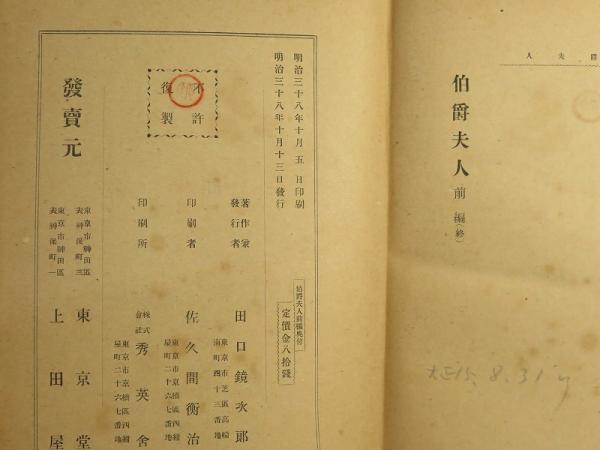 伯爵夫人
伯爵夫人 前編(終)
大15.8.31
明治三十八年十月五日印刷
明治三十八年十月十三日發行
不許
復製
伯爵夫人前編奥付
定價金八拾錢
著作家
發行者
東京市芝區高輪
南町四十三番地
田口鏡次郎
印刷者
東京市京橋區西紺
屋町二十六七番地
佐久間衡治
印刷所
東京市京橋區西紺
屋町二十六七番地
株式
會社
秀英舍
發賣元
東京市神田區
表神保町三
東京堂
東京市神田區
表神保町一
上田屋